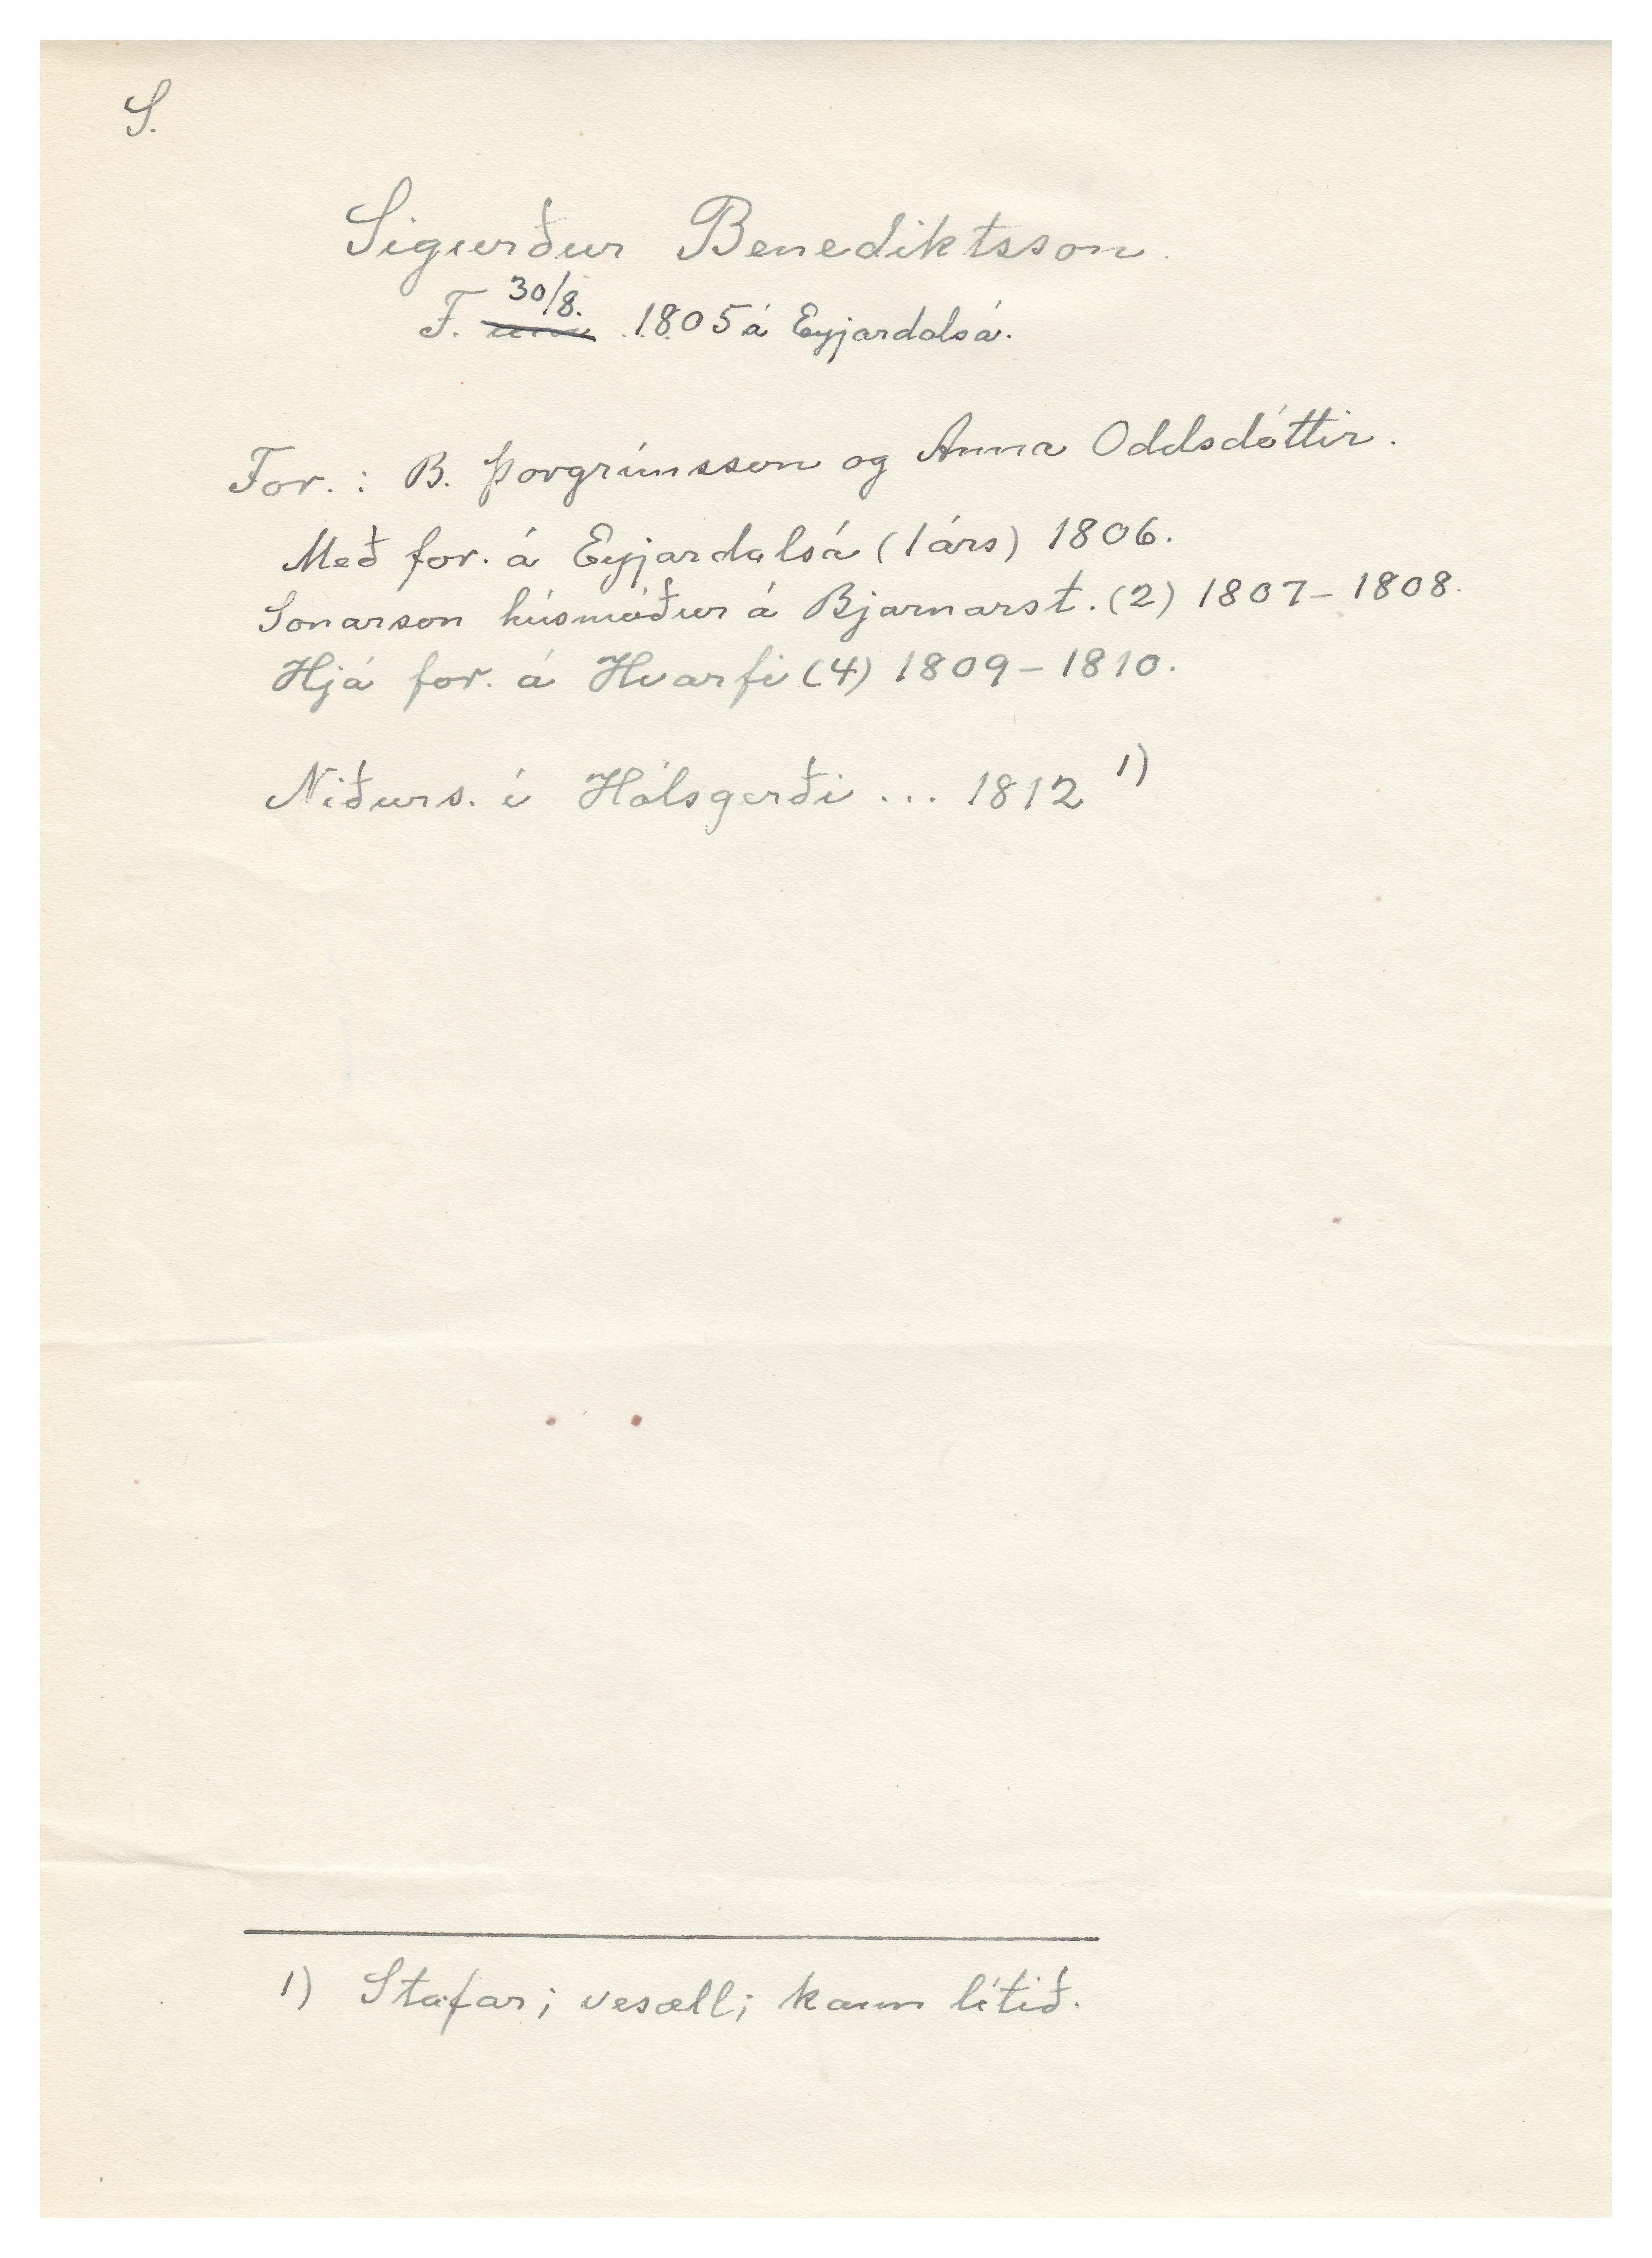 S.
Sigurður Benediktsson.
30/8.
F. 1805 á Eyjardalsá.
For.: B. Þorgrímsson og Anna Oddsdóttir.
Með for. á Eyjardalsá (1 árs) 1806.
Sonarson húsmóður á Bjarnarst. (2) 1807-1808.
Hjá for. á Hvarfi (4) 1809-1810.
Niðurs. í Hálsgerði ... 1812 1)
1) Stafar; vesæll; kann lítið.